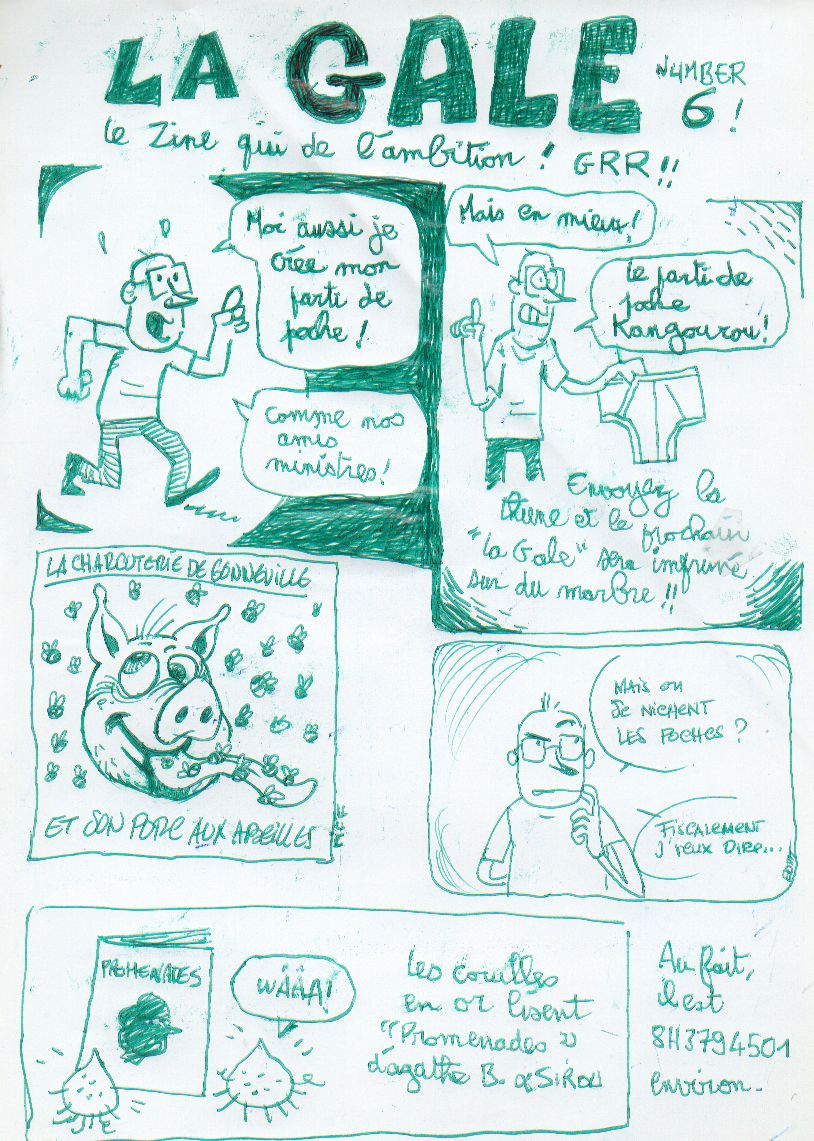 LA GALE
NUMBER
6 !
Le Zine qui de l'ambition ! GRR !!
Moi aussi je
crée mon
parti de
poche !
Comme nos
amis
ministres !
Mais en mieux !
Le parti de
poche
Kangourou !
Envoyez la
thune et le prochain
"La Gale" sera imprimé
sur du marbre !!
LA CHARCUTERIE DE GONNEVILLE
ET SON PORC AUX ABEILLES
MAIS OU
SE NICHENT
LES POCHES ?
FISCALEMENT
J'VEUX DIRE...
PROMENADES
WÄÄA!
Les couilles
en or lisent
"Promenades"
d'agathe B.
Au fait,
il est
8H3794501
environ.